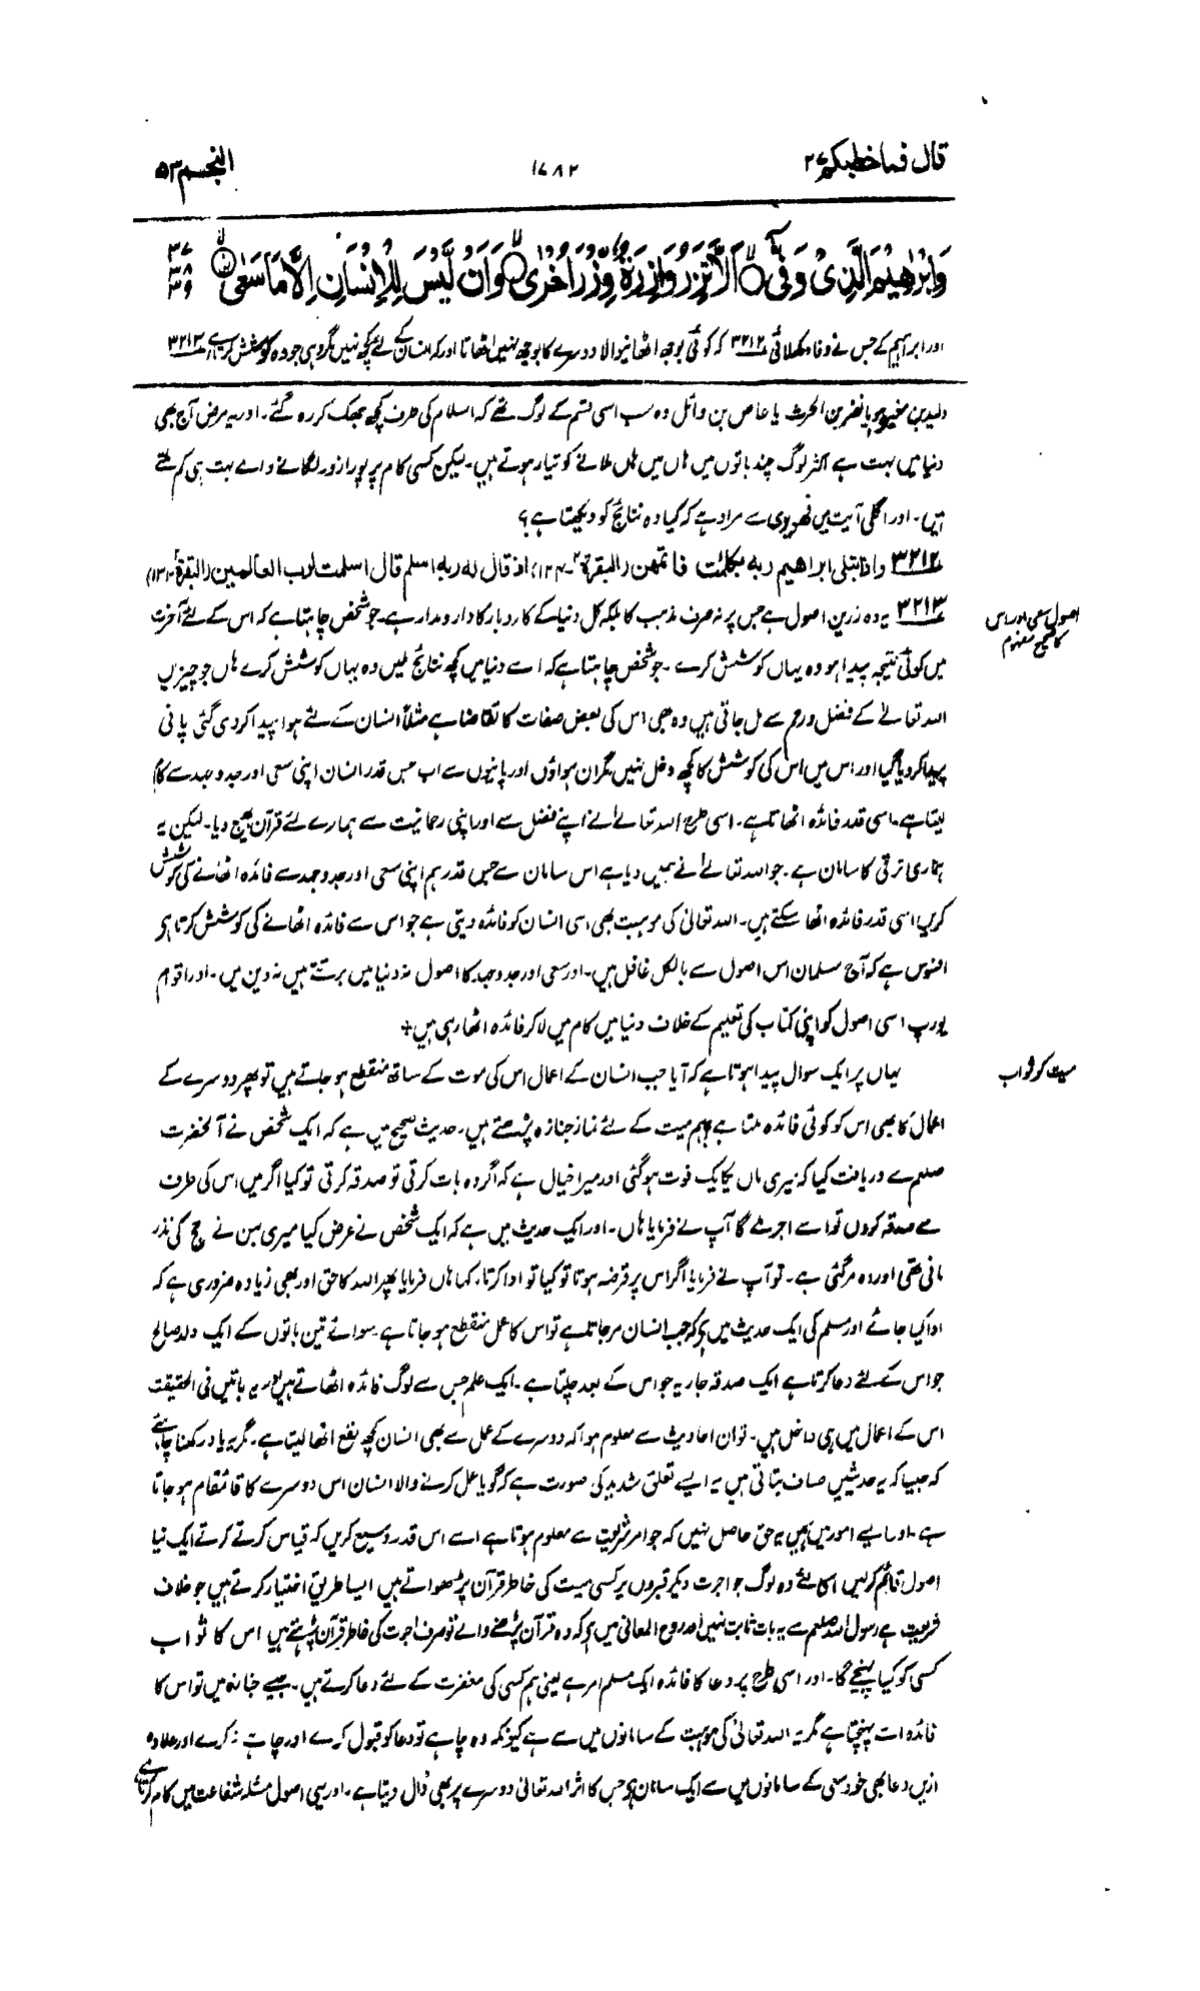 قال فما خطبکم ۲۷
۱۷۸۲
النجم ۵۳
وَاِبْرٰهِيْمَ الَّذِىْ وَفّٰى اَلَّا تَزِرُ وَازِرَةٌ وِّزْرَ اُخْرٰى وَاَنْ لَّيْسَ لِلْاِنْسَانِ اِلَّا مَا سَعٰى
۳۷
۳۸
۳۹
اور ابراہیم کے جس نے وفا دکھلائی ۳۲۱۲ کہ کوئی بوجھ اٹھانیوالا دوسرے کا بوجھ نہیں اٹھاتا اور کہ انسان کے لئے کچھ نہیں مگر وہی جو وہ کوشش کرے ۳۲۱۳
ولید بن مغیرہ یا نضر بن الحرث یا عاص بن وائل وہ سب اسی قسم کے لوگ تھے کہ اسلام کی طرف کچھ جھک کر رہ گئے۔ اور یہ مرض آج بھی
دنیا میں بہت ہے اکثر لوگ چند باتوں میں ہاں میں ہاں ملانے کو تیار ہوتے ہیں۔ لیکن کسی کام پر پورا زور لگانے والے بہت ہی کم ملتے
ہیں۔ اور اگلی آیت میں فھو یری سے مراد ہے کہ کیا وہ نتائج کو دیکھتا ہے؟
۳۲۱۲ واذ ابتلی ابراھیم ربہ بکلمٰت فاتمھن (البقرۃ ۲-۱۲۴) اذ قال لہ ربہ اسلم قال اسلمت لرب العالمین (البقرۃ ۱۳۱)
۳۲۱۳ یہ وہ زرین اصول ہے جس پر نہ صرف مذہب کا بلکہ کل دنیا کے کاروبار کا دار و مدار ہے۔ جو شخص چاہتا ہے کہ اس کے لئے آخرت
اصول سعی اور اس
کا صحیح مفہوم
میں کوئی نتیجہ پیدا ہو وہ یہاں کوشش کرے۔ جو شخص چاہتا ہے کہ اسے دنیا میں کچھ نتائج ملیں وہ یہاں کوشش کرے ہاں جو چیزیں
اللہ تعالےٰ کے فضل و رحم سے مل جاتی ہیں وہ بھی اس کی بعض صفات کا تقاضا ہے مثلاً انسان کے لئے ہوا پیدا کر دی گئی پانی
پیدا کر دیا گیا اور اس میں اس کی کوشش کا کچھ دخل نہیں مگر ان ہواؤں اور پانیوں سے اب جس قدر انسان اپنی سعی اور جد و جہد سے کام
لیتا ہے۔ اسی قدر فائدہ اٹھاتا ہے۔ اسی طرح اللہ تعالےٰ نے اپنے فضل سے اور اپنی رحمانیت سے ہمارے لئے قرآن بھیج دیا۔ لیکن یہ
ہماری ترقی کا سامان ہے۔ جو اللہ تعالےٰ نے ہمیں دیا ہے اس سامان سے جس قدر ہم اپنی سعی اور جد و جہد سے فائدہ اٹھانے کی کوشش
کریں اسی قدر فائدہ اٹھا سکتے ہیں۔ اللہ تعالیٰ کی موہبت بھی اسی انسان کو فائدہ دیتی ہے جو اس سے فائدہ اٹھانے کی کوشش کرتا ہو
افسوس ہے کہ آج مسلمان اس اصول سے بالکل غافل ہیں۔ اور سعی اور جد و جہد کا اصول نہ دنیا میں برتتے ہیں نہ دین میں۔ اور اقوام
یورپ اسی اصول کو اپنی کتاب کی تعلیم کے خلاف دنیا میں کام میں لا کر فائدہ اٹھا رہی ہیں +
یہاں پر ایک سوال پیدا ہوتا ہے کہ آیا جب انسان کے اعمال اس کی موت کے ساتھ منقطع ہو جاتے ہیں تو پھر دوسرے کے
میت کو ثواب
اعمال کا بھی اس کو کوئی فائدہ ملتا ہے ہم میت کے لئے نماز جنازہ پڑھتے ہیں۔ حدیث صحیح میں ہے کہ ایک شخص نے آنحضرت
صلعم سے دریافت کیا کہ میری ماں یکایک فوت ہو گئی اور میرا خیال ہے کہ اگر وہ بات کرتی تو صدقہ کرتی تو کیا اگر میں اس کی طرف
سے صدقہ کروں تو اسے اجر ملے گا آپ نے فرمایا ہاں۔ اور ایک حدیث میں ہے کہ ایک شخص نے عرض کیا میری بہن نے حج کی نذر
مانی تھی اور وہ مر گئی ہے۔ تو آپ نے فرمایا اگر اس پر قرضہ ہوتا تو کیا تو ادا کرتا، کہا ہاں فرمایا پھر اللہ کا حق اور بھی زیادہ ضروری ہے کہ
ادا کیا جائے اور مسلم کی ایک حدیث میں ہے کہ جب انسان مر جاتا ہے تو اس کا عمل منقطع ہو جاتا ہے سوائے تین باتوں کے ایک ولد صالح
جو اس کے لئے دعا کرتا ہے ایک صدقہ جاریہ جو اس کے بعد چلتا ہے۔ ایک علم جس سے لوگ فائدہ اٹھاتے ہیں اور یہ باتیں فی الحقیقت
اس کے اعمال میں ہی داخل ہیں۔ تو ان احادیث سے معلوم ہوا کہ دوسرے کے عمل سے بھی انسان کچھ نفع اٹھا لیتا ہے۔ مگر یہ یاد رکھنا چاہئے
کہ جیسا کہ یہ حدیثیں صاف بتاتی ہیں یہ ایسے تعلق شدید کی صورت ہے کہ گویا عمل کرنے والا انسان اس دوسرے کا قائمقام ہو جاتا
ہے۔ اور ایسے امور میں ہمیں یہ حق حاصل نہیں کہ جو امر شریعت سے معلوم ہوتا ہے اسے اس قدر وسیع کریں کہ قیاس کرتے کرتے ایک نیا
اصول قائم کرلیں اس لئے وہ لوگ جو اجرت دیکر قبروں پر کسی میت کی خاطر قرآن پڑھواتے ہیں ایسا طریق اختیار کرتے ہیں جو خلاف
شریعت ہے رسول اللہ صلعم سے یہ بات ثابت نہیں اور روح المعانی میں ہے کہ وہ قرآن پڑھنے والے تو صرف اجرت کی خاطر قرآن پڑھتے ہیں اس کا ثواب
کسی کو کیا پہنچے گا۔ اور اسی طرح پر دعا کا فائدہ ایک مسلم امر ہے یعنی ہم کسی کی مغفرت کے لئے دعا کرتے ہیں۔ جیسے جنازہ میں تو اس کا
فائدہ اسے پہنچتا ہے مگر یہ اللہ تعالیٰ کی موہبت کے سامانوں میں سے ہے کیونکہ وہ چاہے تو دعا کو قبول کرے اور چاہے نہ کرے اور علاوہ
ازیں دعا بھی خود سعی کے سامانوں میں سے ایک سامان ہے جس کا اثر اللہ تعالیٰ دوسرے پر بھی ڈال دیتا ہے۔ اور یہی اصول مسئلہ شفاعت میں کام کرتا ہے